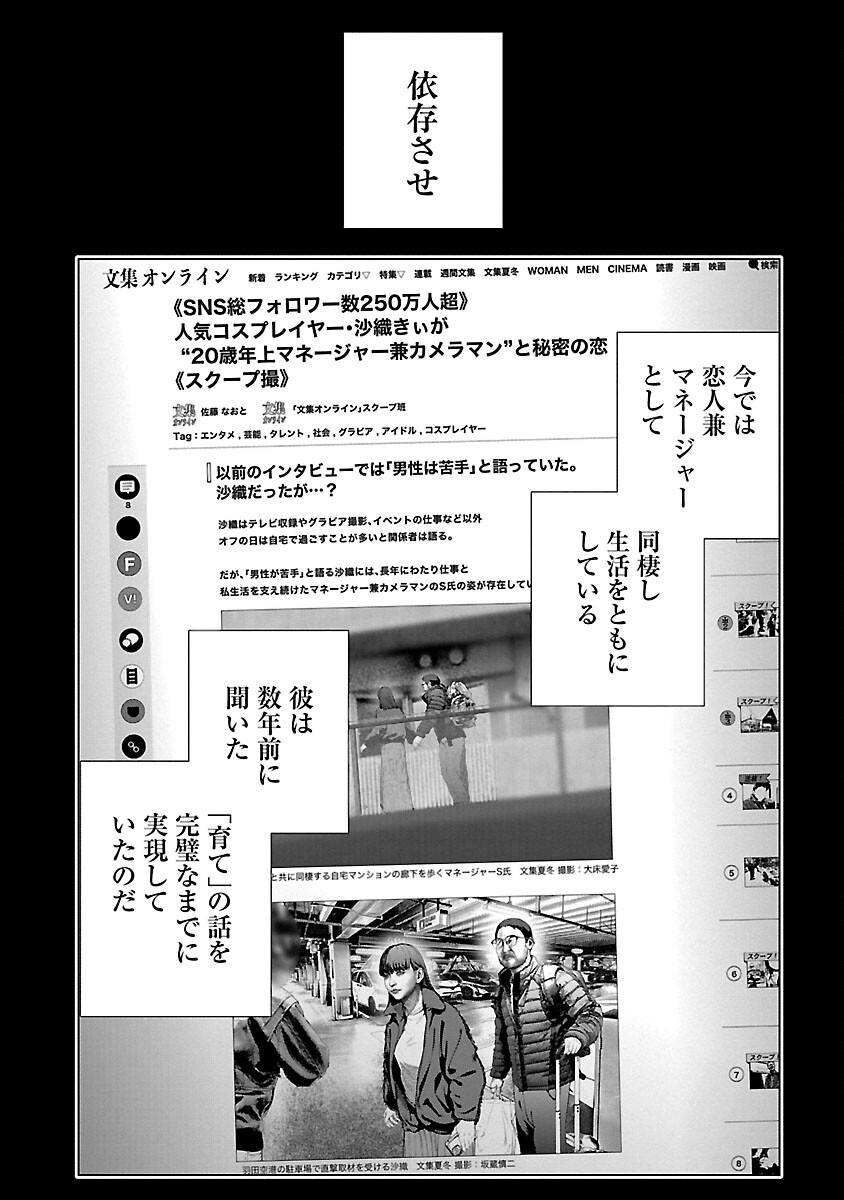 依存させ
文集オンライン
新着 ランキング カテゴリ▽ 特集▽ 連載 週間文集 文集夏冬 WOMAN MEN CINEMA 読書 漫画 映画
検索
《SNS総フォロワー数250万人超》
人気コスプレイヤー・沙織きぃが
“20歳年上マネージャー兼カメラマン”と秘密の恋
《スクープ撮》
文集オンライン 佐藤 なおと 文集オンライン 「文集オンライン」スクープ班
Tag:エンタメ , 芸能 , タレント , 社会 , グラビア , アイドル , コスプレイヤー
今では
恋人兼
マネージャー
として
以前のインタビューでは「男性は苦手」と語っていた。
沙織だったが…?
8
F
V!
沙織はテレビ収録やグラビア撮影、イベントの仕事など以外
オフの日は自宅で過ごすことが多いと関係者は語る。
だが、「男性が苦手」と語る沙織には、長年にわたり仕事と
私生活を支え続けたマネージャー兼カメラマンのS氏の姿が存在してい
同棲し
生活をともに
している
スクープ!
スクープ!
速報!
4
5
スクープ!
6
スクープ!
7
8
彼は
数年前に
聞いた
「育て」の話を
完璧なまでに
実現して
いたのだ
と共に同棲する自宅マンションの廊下を歩くマネージャーS氏 文集夏冬 撮影:大床愛子
羽田空港の駐車場で直撃取材を受ける沙織 文集夏冬 撮影:坂蔵慎二